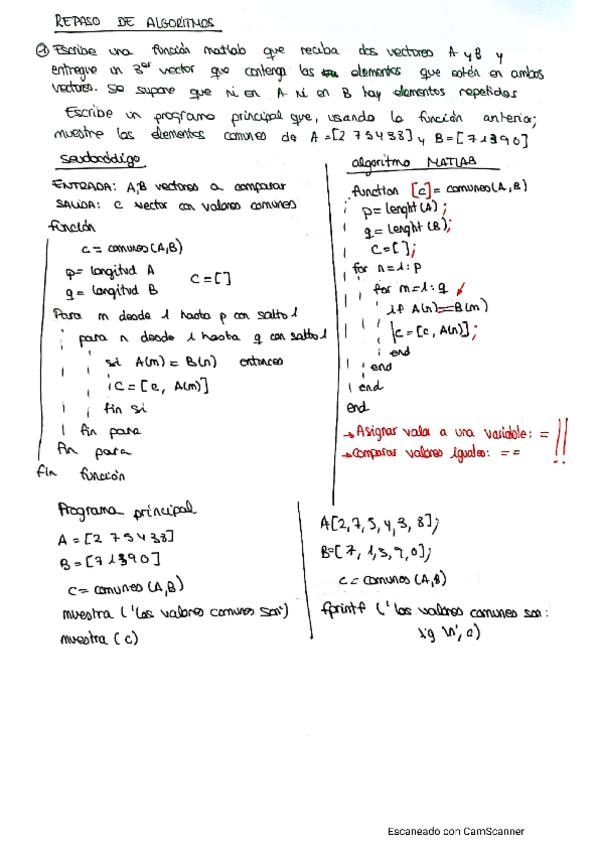 REPASO DE ALGORITMOS
① Escribe una función matlab que reciba dos vectores A y B y
entregue un 3er vector que contenga los elementos que estén en ambos
vectores. Se supone que ni en A ni en B hay elementos repetidos
Escribe un programa principal que, usando la función anterior,
muestre los elementos comunes de A=[2 7 5 4 3 8] y B=[7 1 3 9 0]
seudocódigo
ENTRADA: A, B vectores a comparar
SALIDA: C vector con valores comunes
función
c = comunes(A,B)
p= longitud A
q= longitud B
C=[]
Para m desde 1 hasta p con salto 1
para n desde 1 hasta q con salto 1
si A(m) = B(n) entonces
C = [c, A(m)]
fin si
fin para
fin para
fin función
algoritmo MATLAB
function [c]= comunes(A,B)
p= lenght(A);
q= lenght(B);
C=[];
for n=1:p
for m=1:q
if A(n)==B(m)
C=[c, A(n)];
end
end
end
end
→ Asignar valor a una variable: =
→ Comparar valores iguales: = = !!
Programa principal
A = [2 7 5 4 3 8]
B = [7 1 3 9 0]
c= comunes (A,B)
muestra ('Los valores comunes son')
muestra (c)
A[2,7,5,4,3,8];
B=[7,1,3,9,0];
c= comunes (A,B)
fprintf ('los valores comunes son:
%g \n', c)
Escaneado con CamScanner